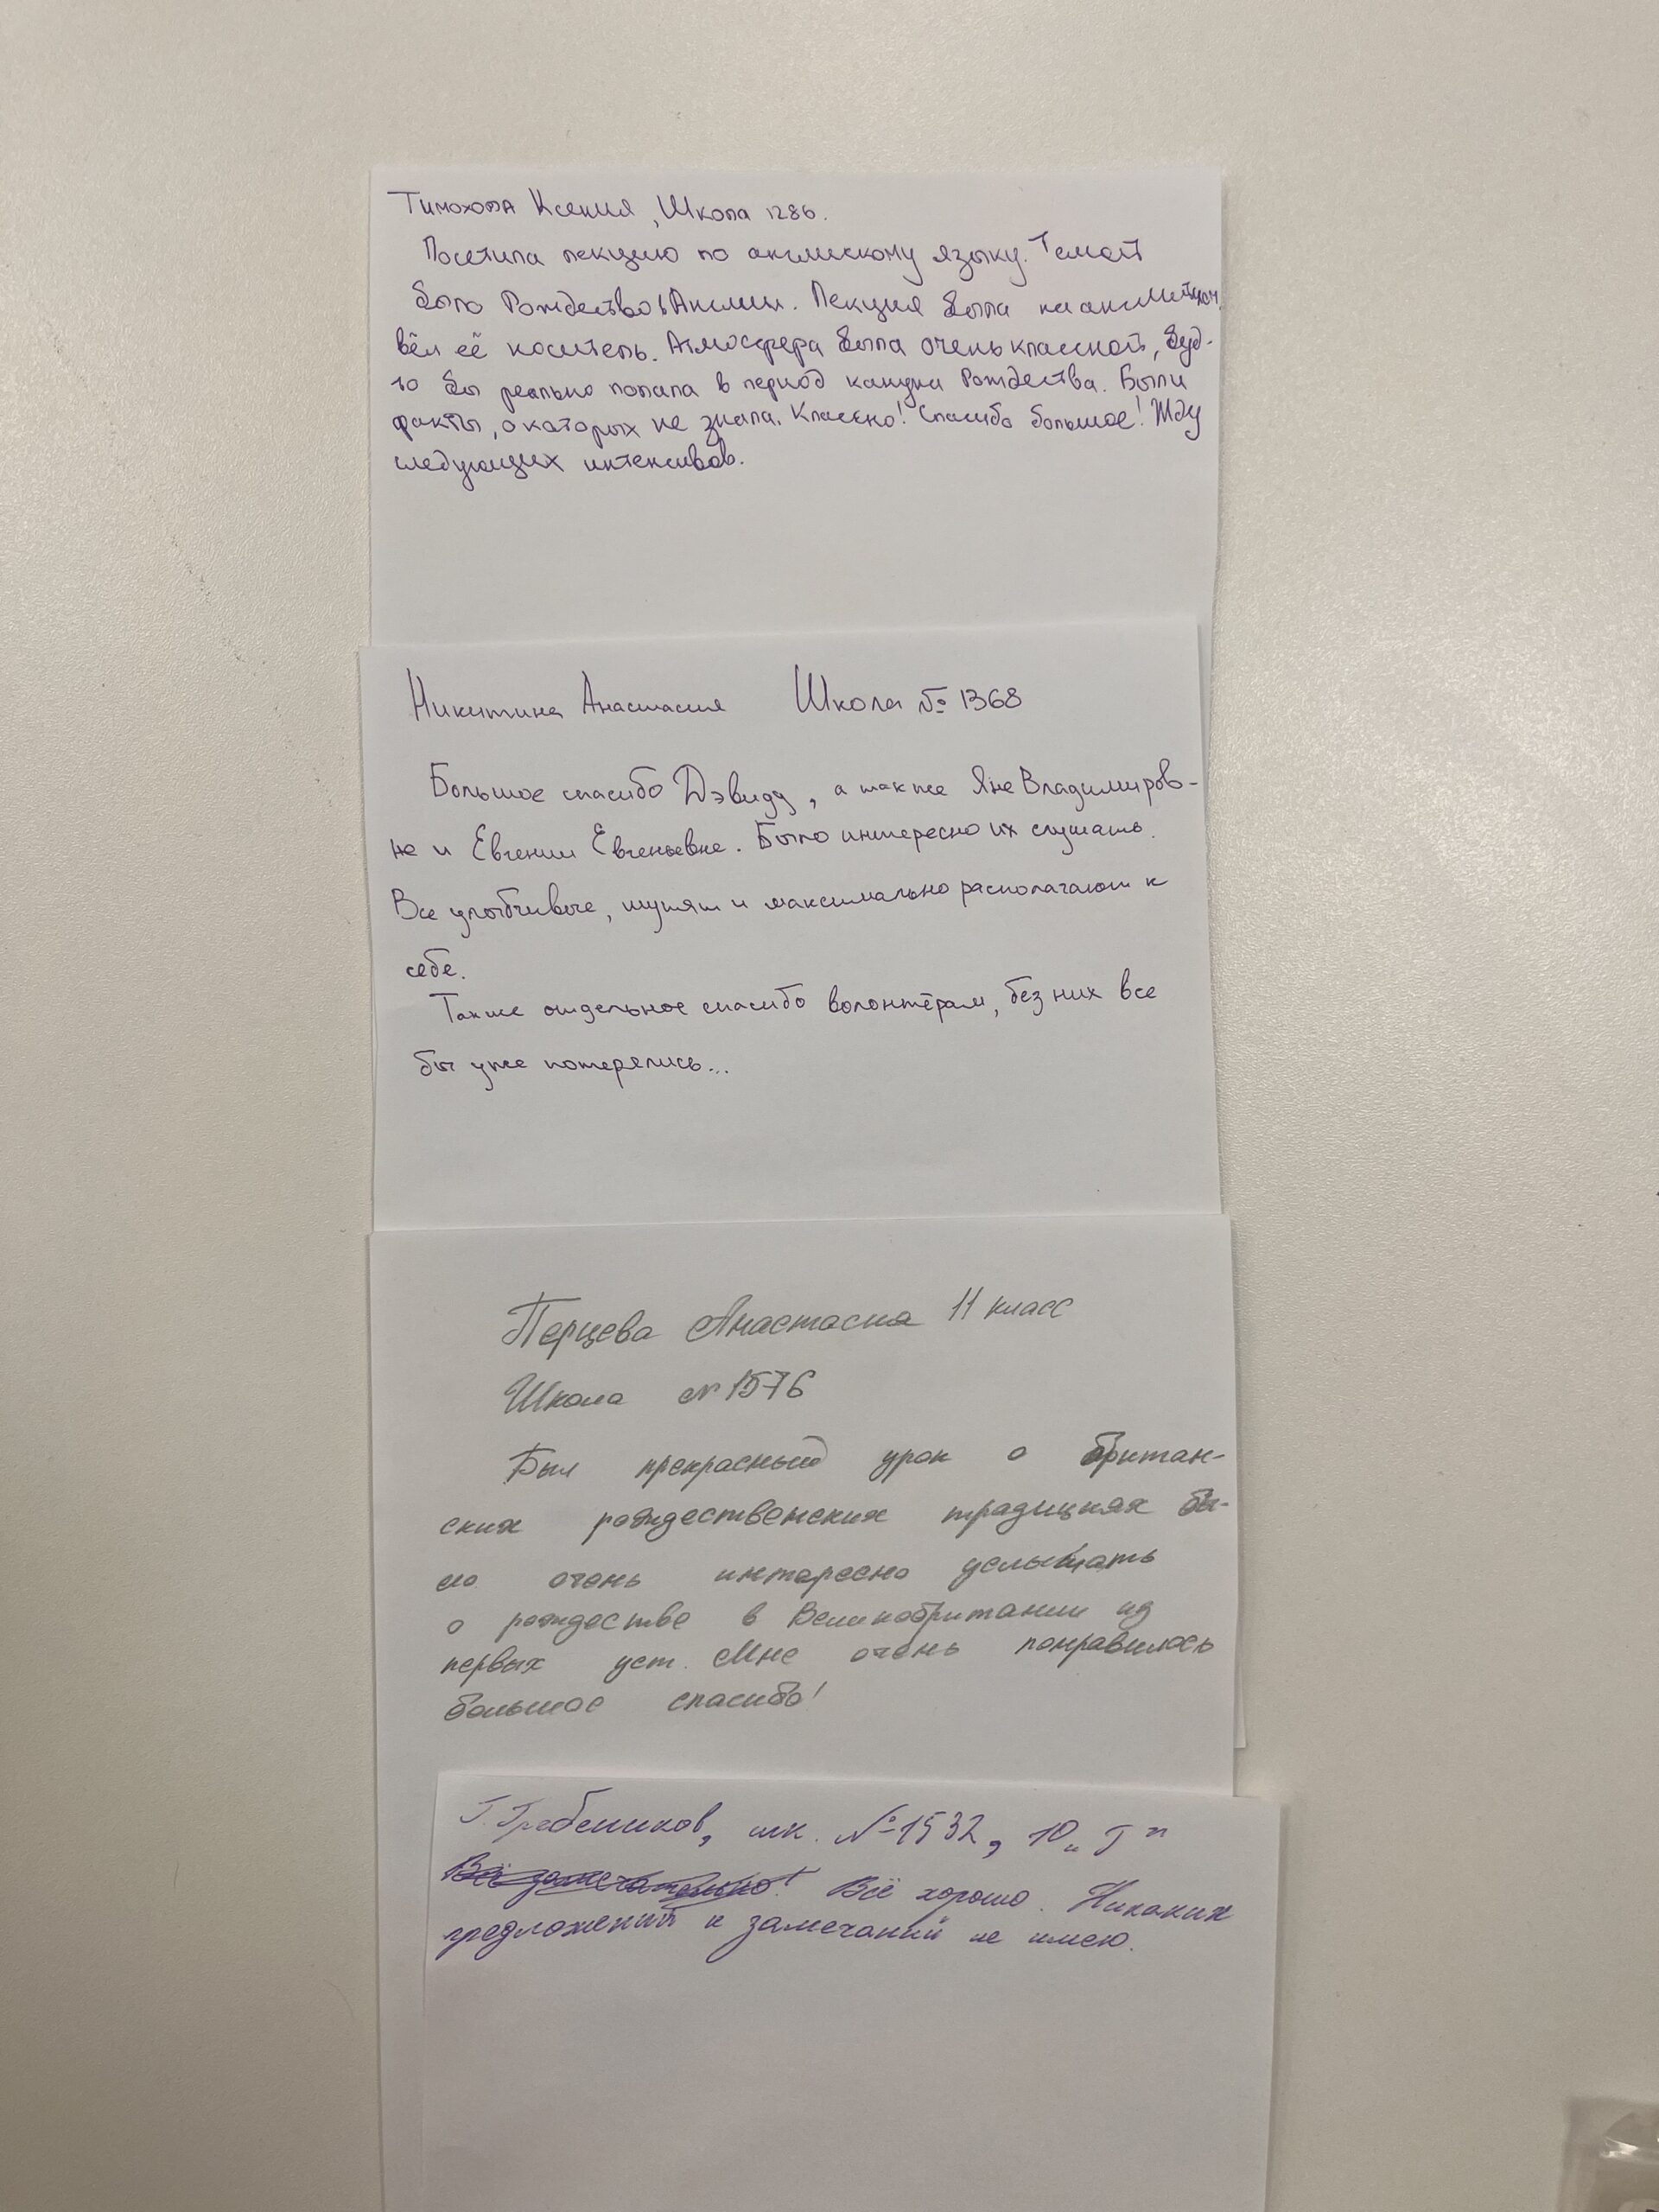 Ксения, Школа 1286.
Посетила лекцию по англискому языку. Темой
было Рождество в Англии. Лекция была на английском,
вёл её носитель. Атмосфера была очень классной, буд-
то бы реально попала в период кануна Рождества. Были
факты, о которых не знала. Классно! Спасибо большое! Жду
следующих интенсивов.
Никитина Анастасия Школа № 1368
Большое спасибо Дэвиду, а также Яне Владимиров-
не и Евгении Евгеньевне. Было интересно их слушать.
Все улыбчивые, шутят и максимально располагают к
себе.
Также отдельное спасибо волонтёрам, без них все
бы уже потерялись...
Перцева Анастасия 11 класс
Школа № 1576
Был прекрасный урок о британ-
ских рождественских традициях бы-
ло очень интересно услышать
о рождестве в Великобритании из
первых уст. Мне очень понравилось
большое спасибо!
Г. Гребеников, шк. №1532, 10 „Г"
Всё замечательно! Всё хорошо. Никаких
предложений и замечаний не имею.